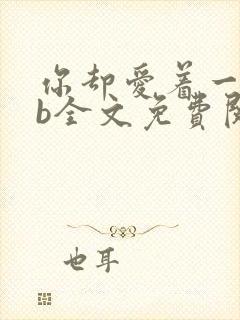 你却爱着一
b全文免費閱
也耳